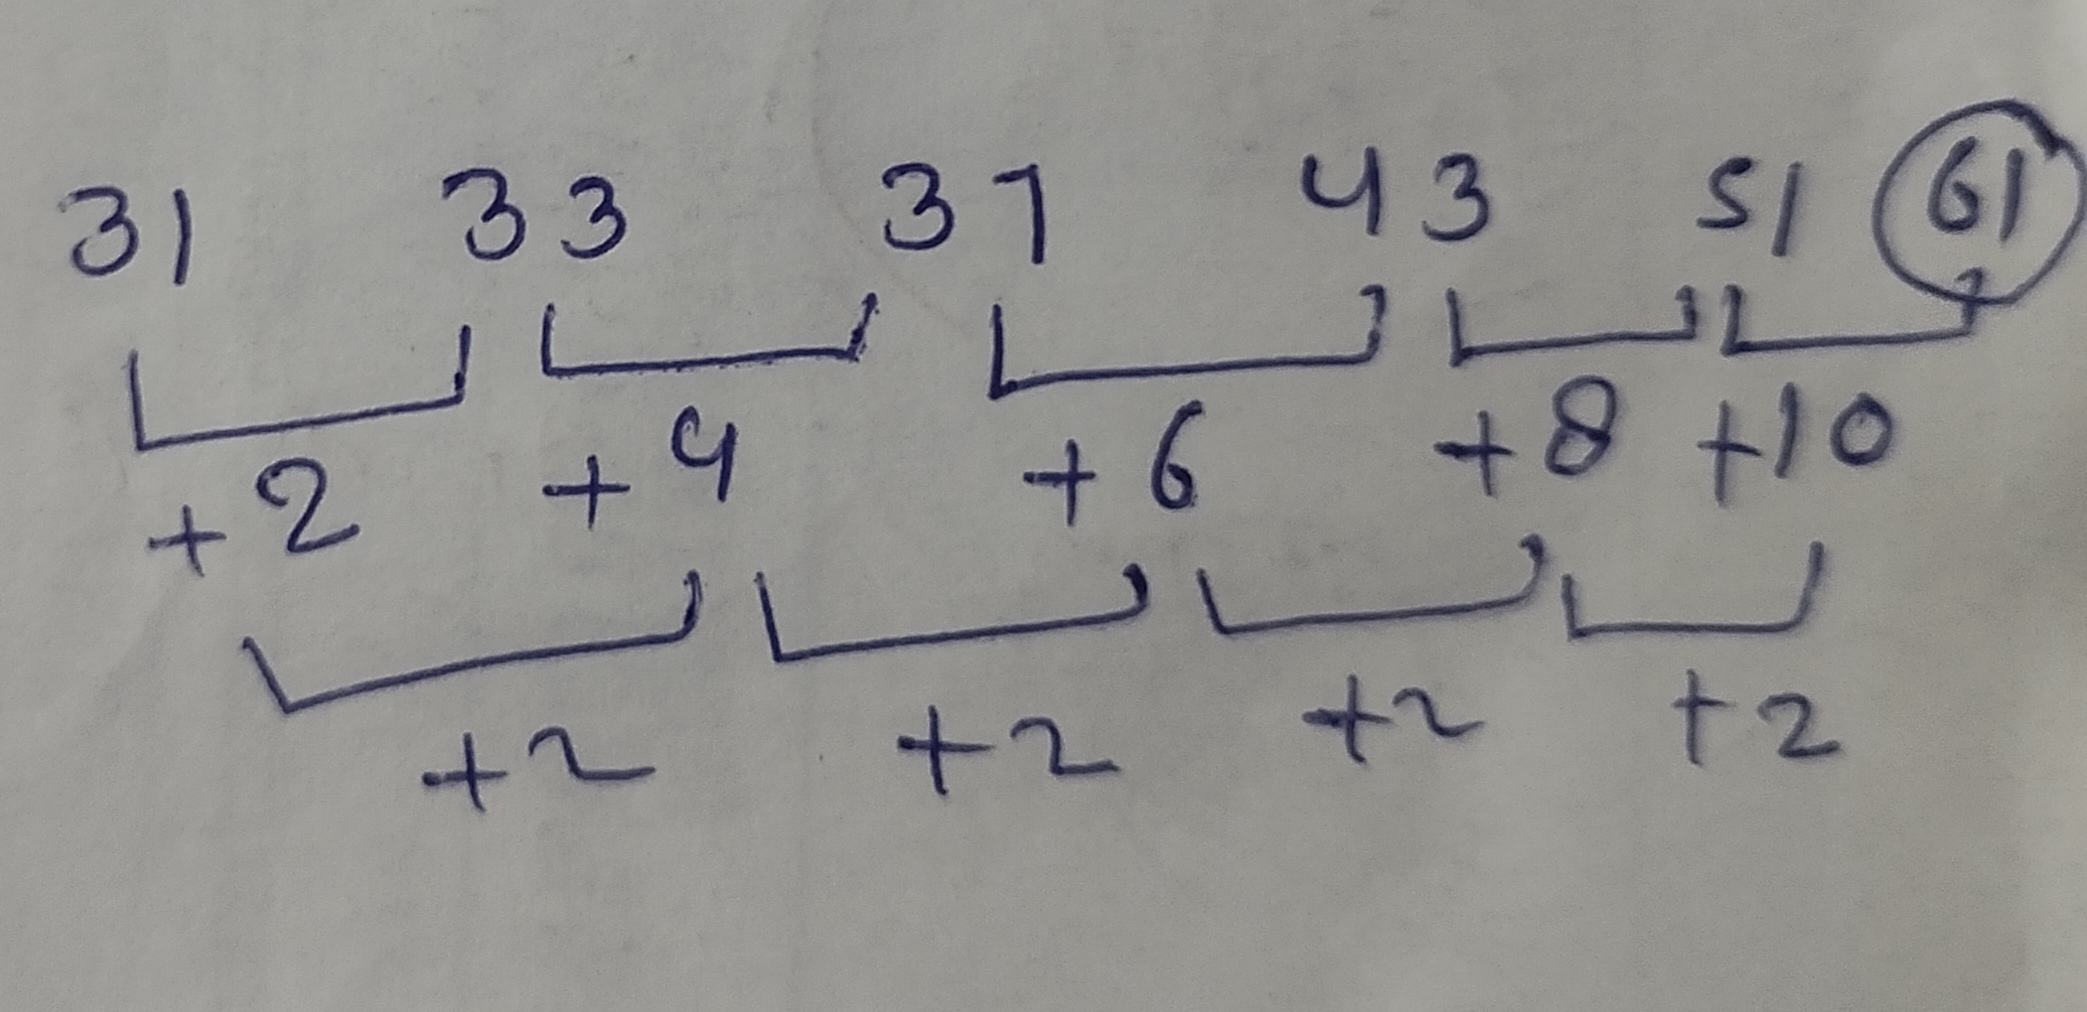 31 33 37 43 51 61
+2 +4 +6 +8 +10
+2 +2 +2 +2